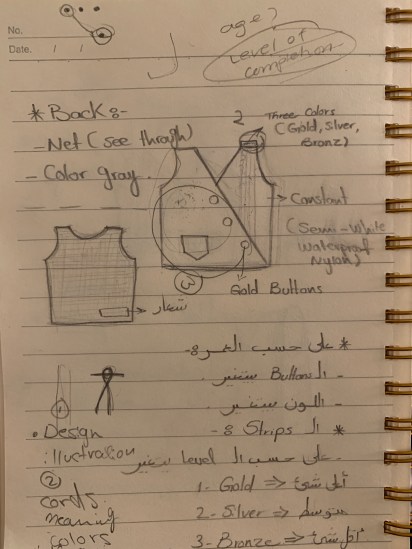 No.
Date. / /
age?
Level of
completion
* Back :-
- Net (see through)
- Color gray.
2
Three Colors
(Gold, Silver,
Bronz)
Constant
(Semi-White
waterproof
Nylon)
3
Gold Buttons
شعار
* على حسب العمر :-
- الـ Buttons ستتغير.
- اللون ستتغير.
* الـ Strips :-
على حسب الـ Level ستتغير.
1- Gold => أعلى شئ
2- Silver => متوسط
3- Bronze => أقل شئ
1
• Design
illustration
2
cords
meaning
colors